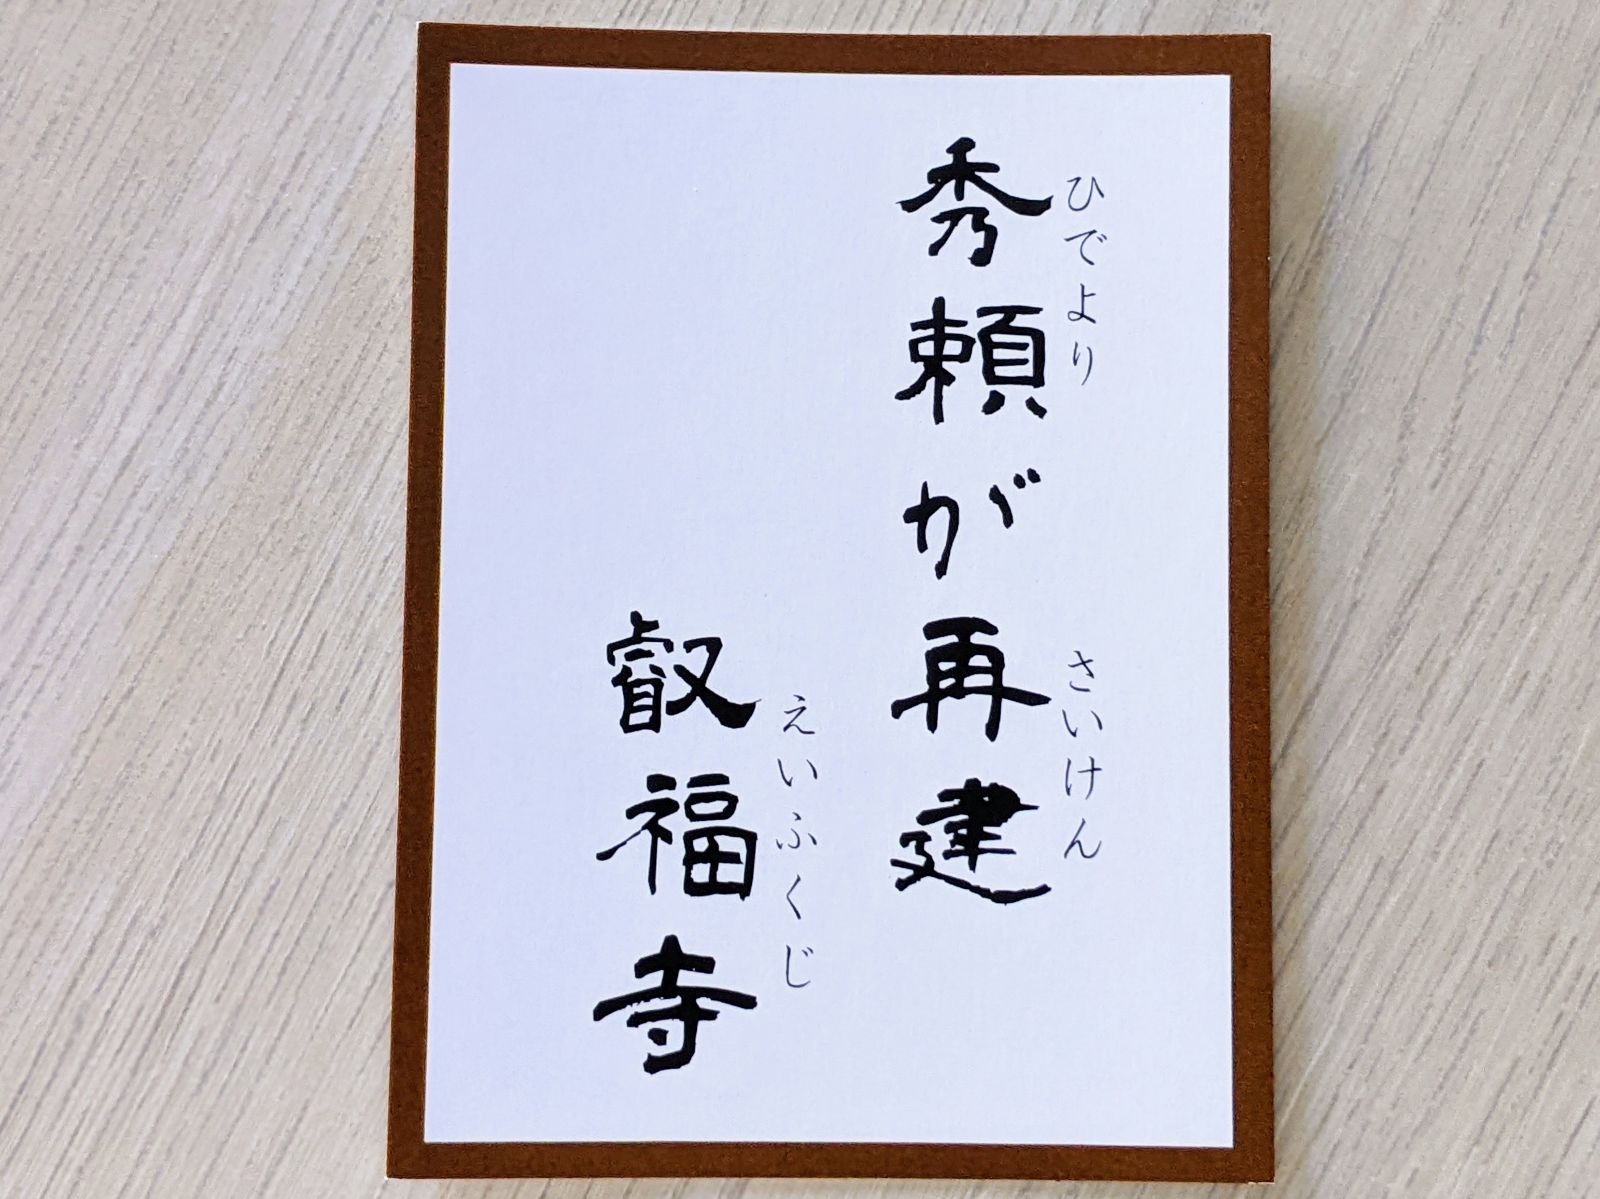 秀頼が再建
ひでより
さいけん
叡福寺
えいふくじ